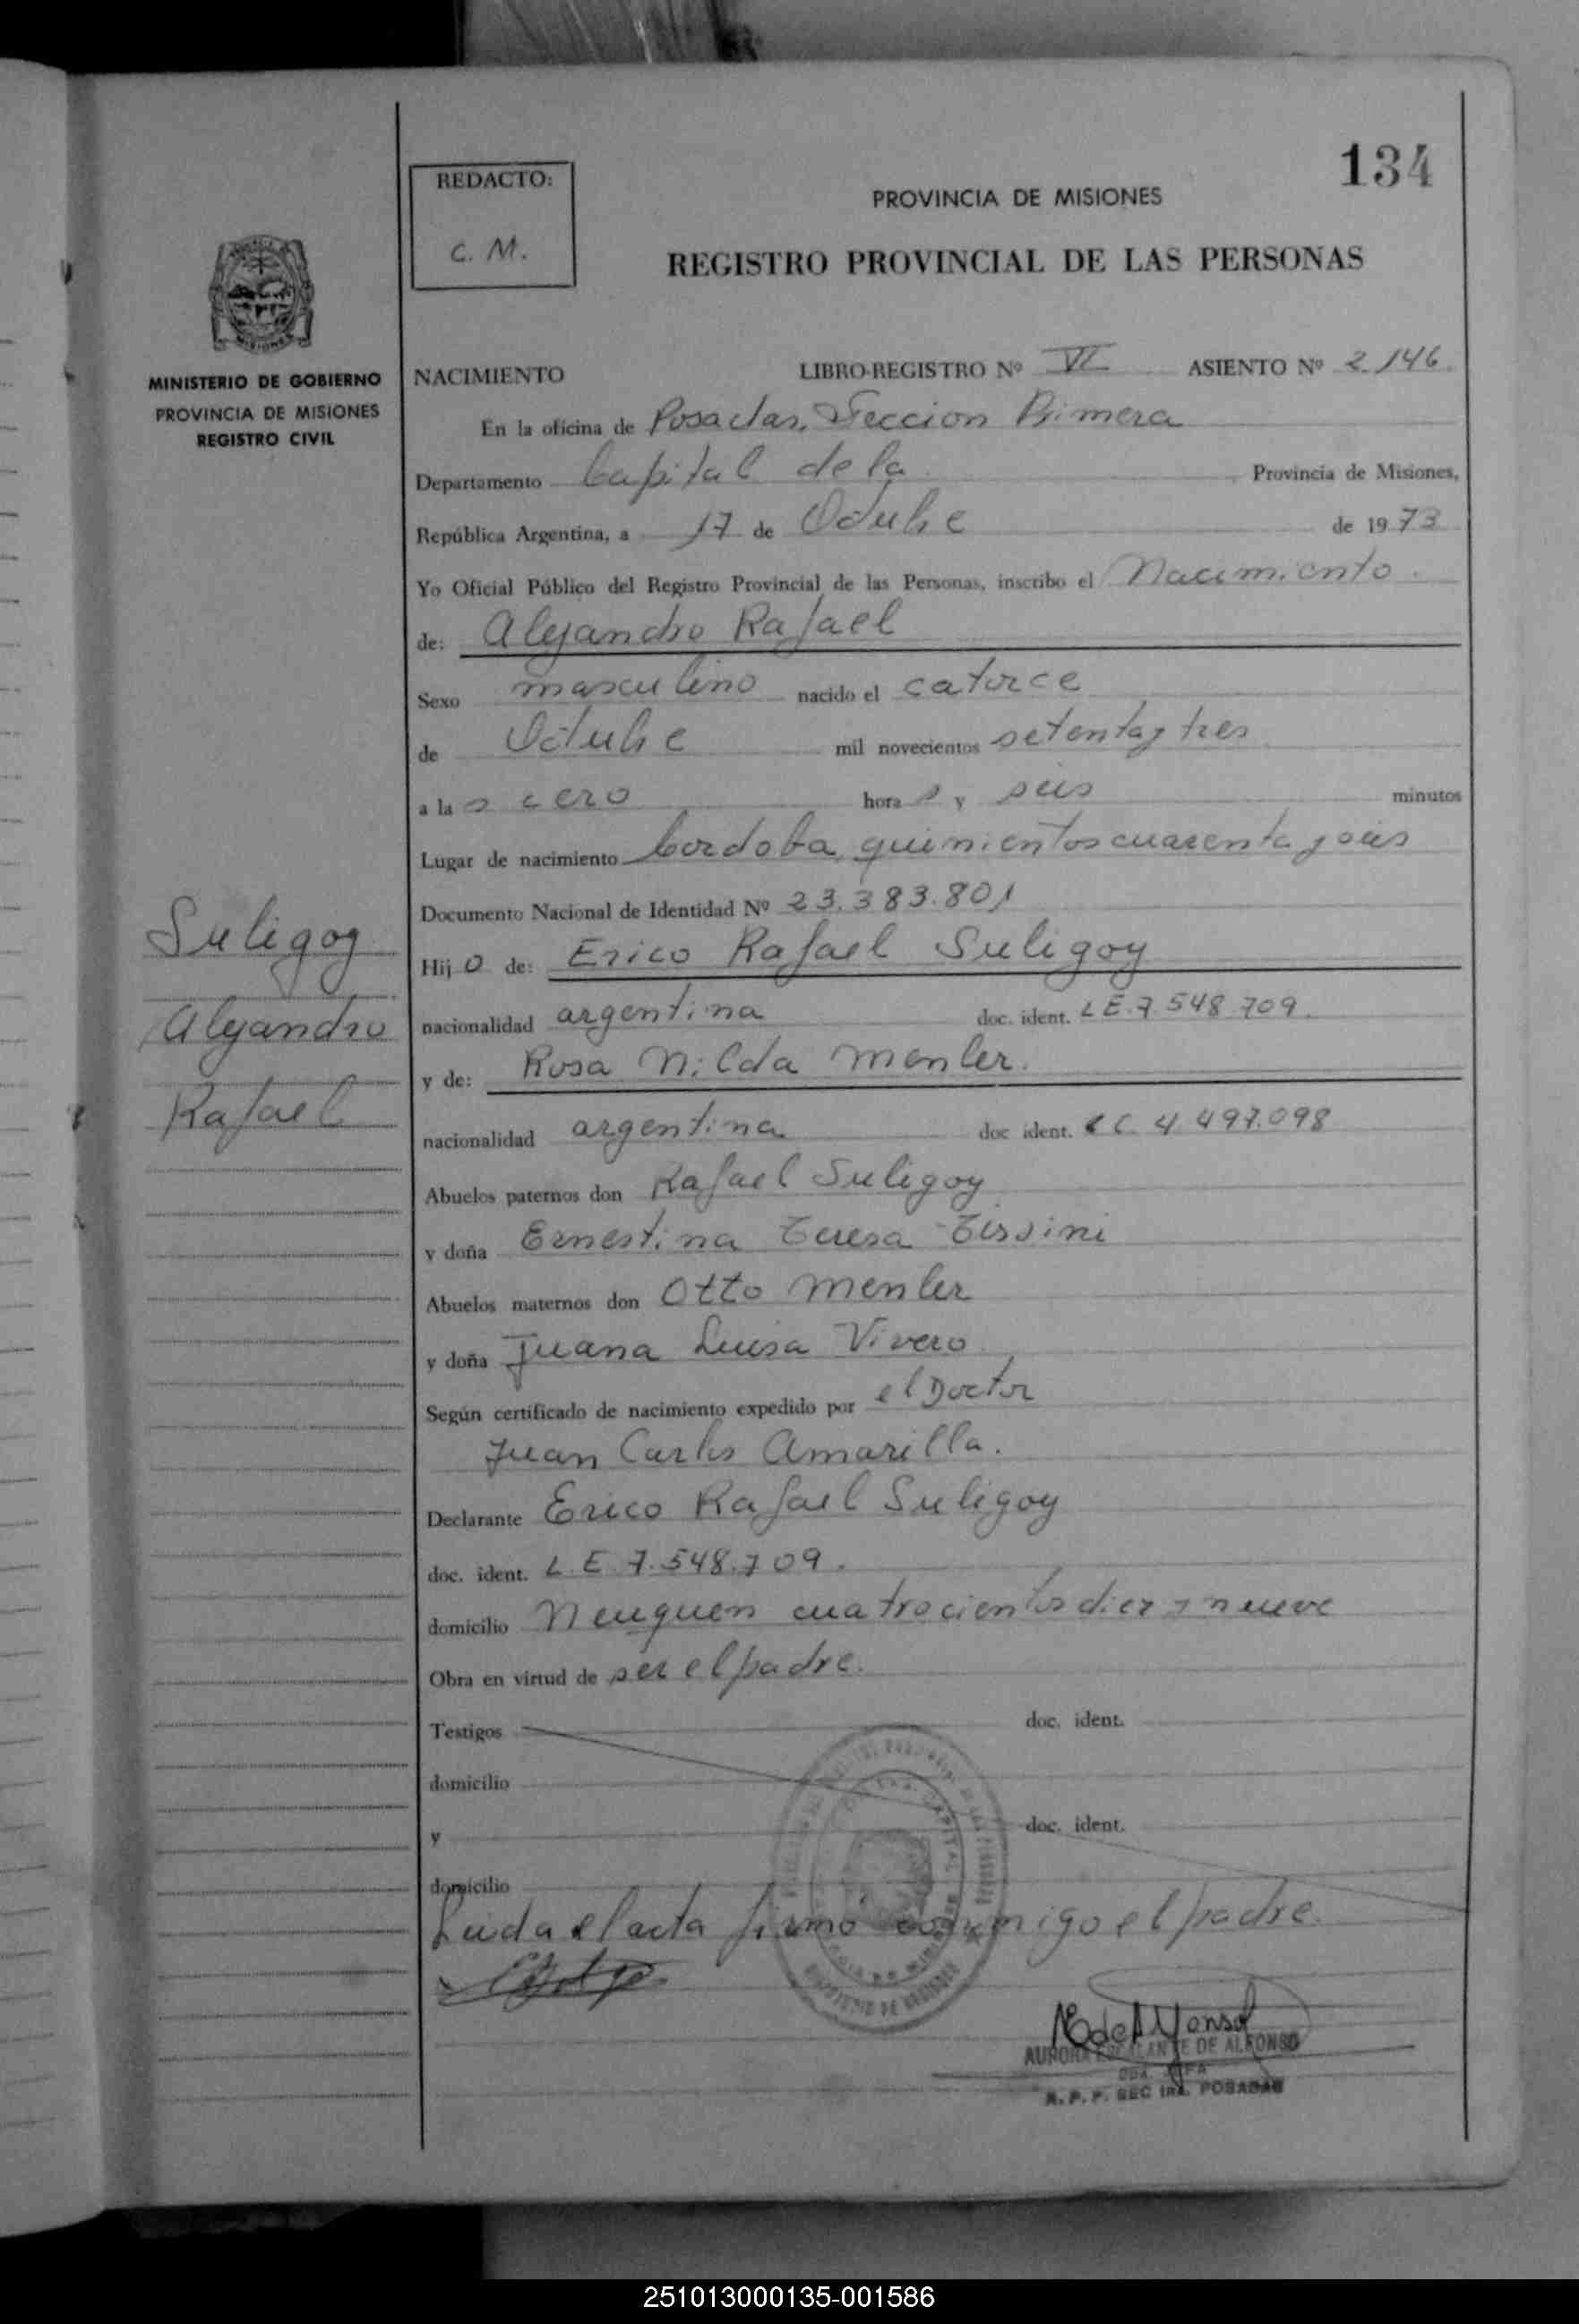 134
REDACTO:
C. M.
PROVINCIA DE MISIONES
REGISTRO PROVINCIAL DE LAS PERSONAS
MISIONES
MINISTERIO DE GOBIERNO
PROVINCIA DE MISIONES
REGISTRO CIVIL
NACIMIENTO LIBRO-REGISTRO Nº VI ASIENTO Nº 2.146
En la oficina de Posadas, Seccion Primera
Departamento Capital de la Provincia de Misiones,
República Argentina, a 17 de Octubre de 1973
Yo Oficial Público del Registro Provincial de las Personas, inscribo el Nacimiento
de: Alejandro Rafael
Sexo masculino nacido el catorce
de Octubre mil novecientos setenta y tres
a las cero horas y seis minutos
Lugar de nacimiento Cordoba, quinientos cuarenta y seis
Documento Nacional de Identidad Nº 23.383.801
Suligoy
Alejandro
Rafael
Hijo de: Erico Rafael Suligoy
nacionalidad argentina doc. ident. LE.7.548.709.
y de: Rosa Nilda Menler.
nacionalidad argentina doc ident. LC. 4.497.098
Abuelos paternos don Rafael Suligoy
y doña Ernestina Teresa Tissini
Abuelos maternos don Otto Menler
y doña Juana Luisa Vivero
Según certificado de nacimiento expedido por el Doctor
Juan Carlos Amarilla.
Declarante Erico Rafael Suligoy
doc. ident. L.E. 7.548.709.
domicilio Neuquen cuatrocientos diez y nueve
Obra en virtud de ser el padre.
Testigos doc. ident.
domicilio
y doc. ident.
domicilio
Leida el acta firmó conmigo el padre.
AURORA ESCALANTE DE ALFONSO
R. P. P. SEC 1ra. POSADAS
251013000135-001586